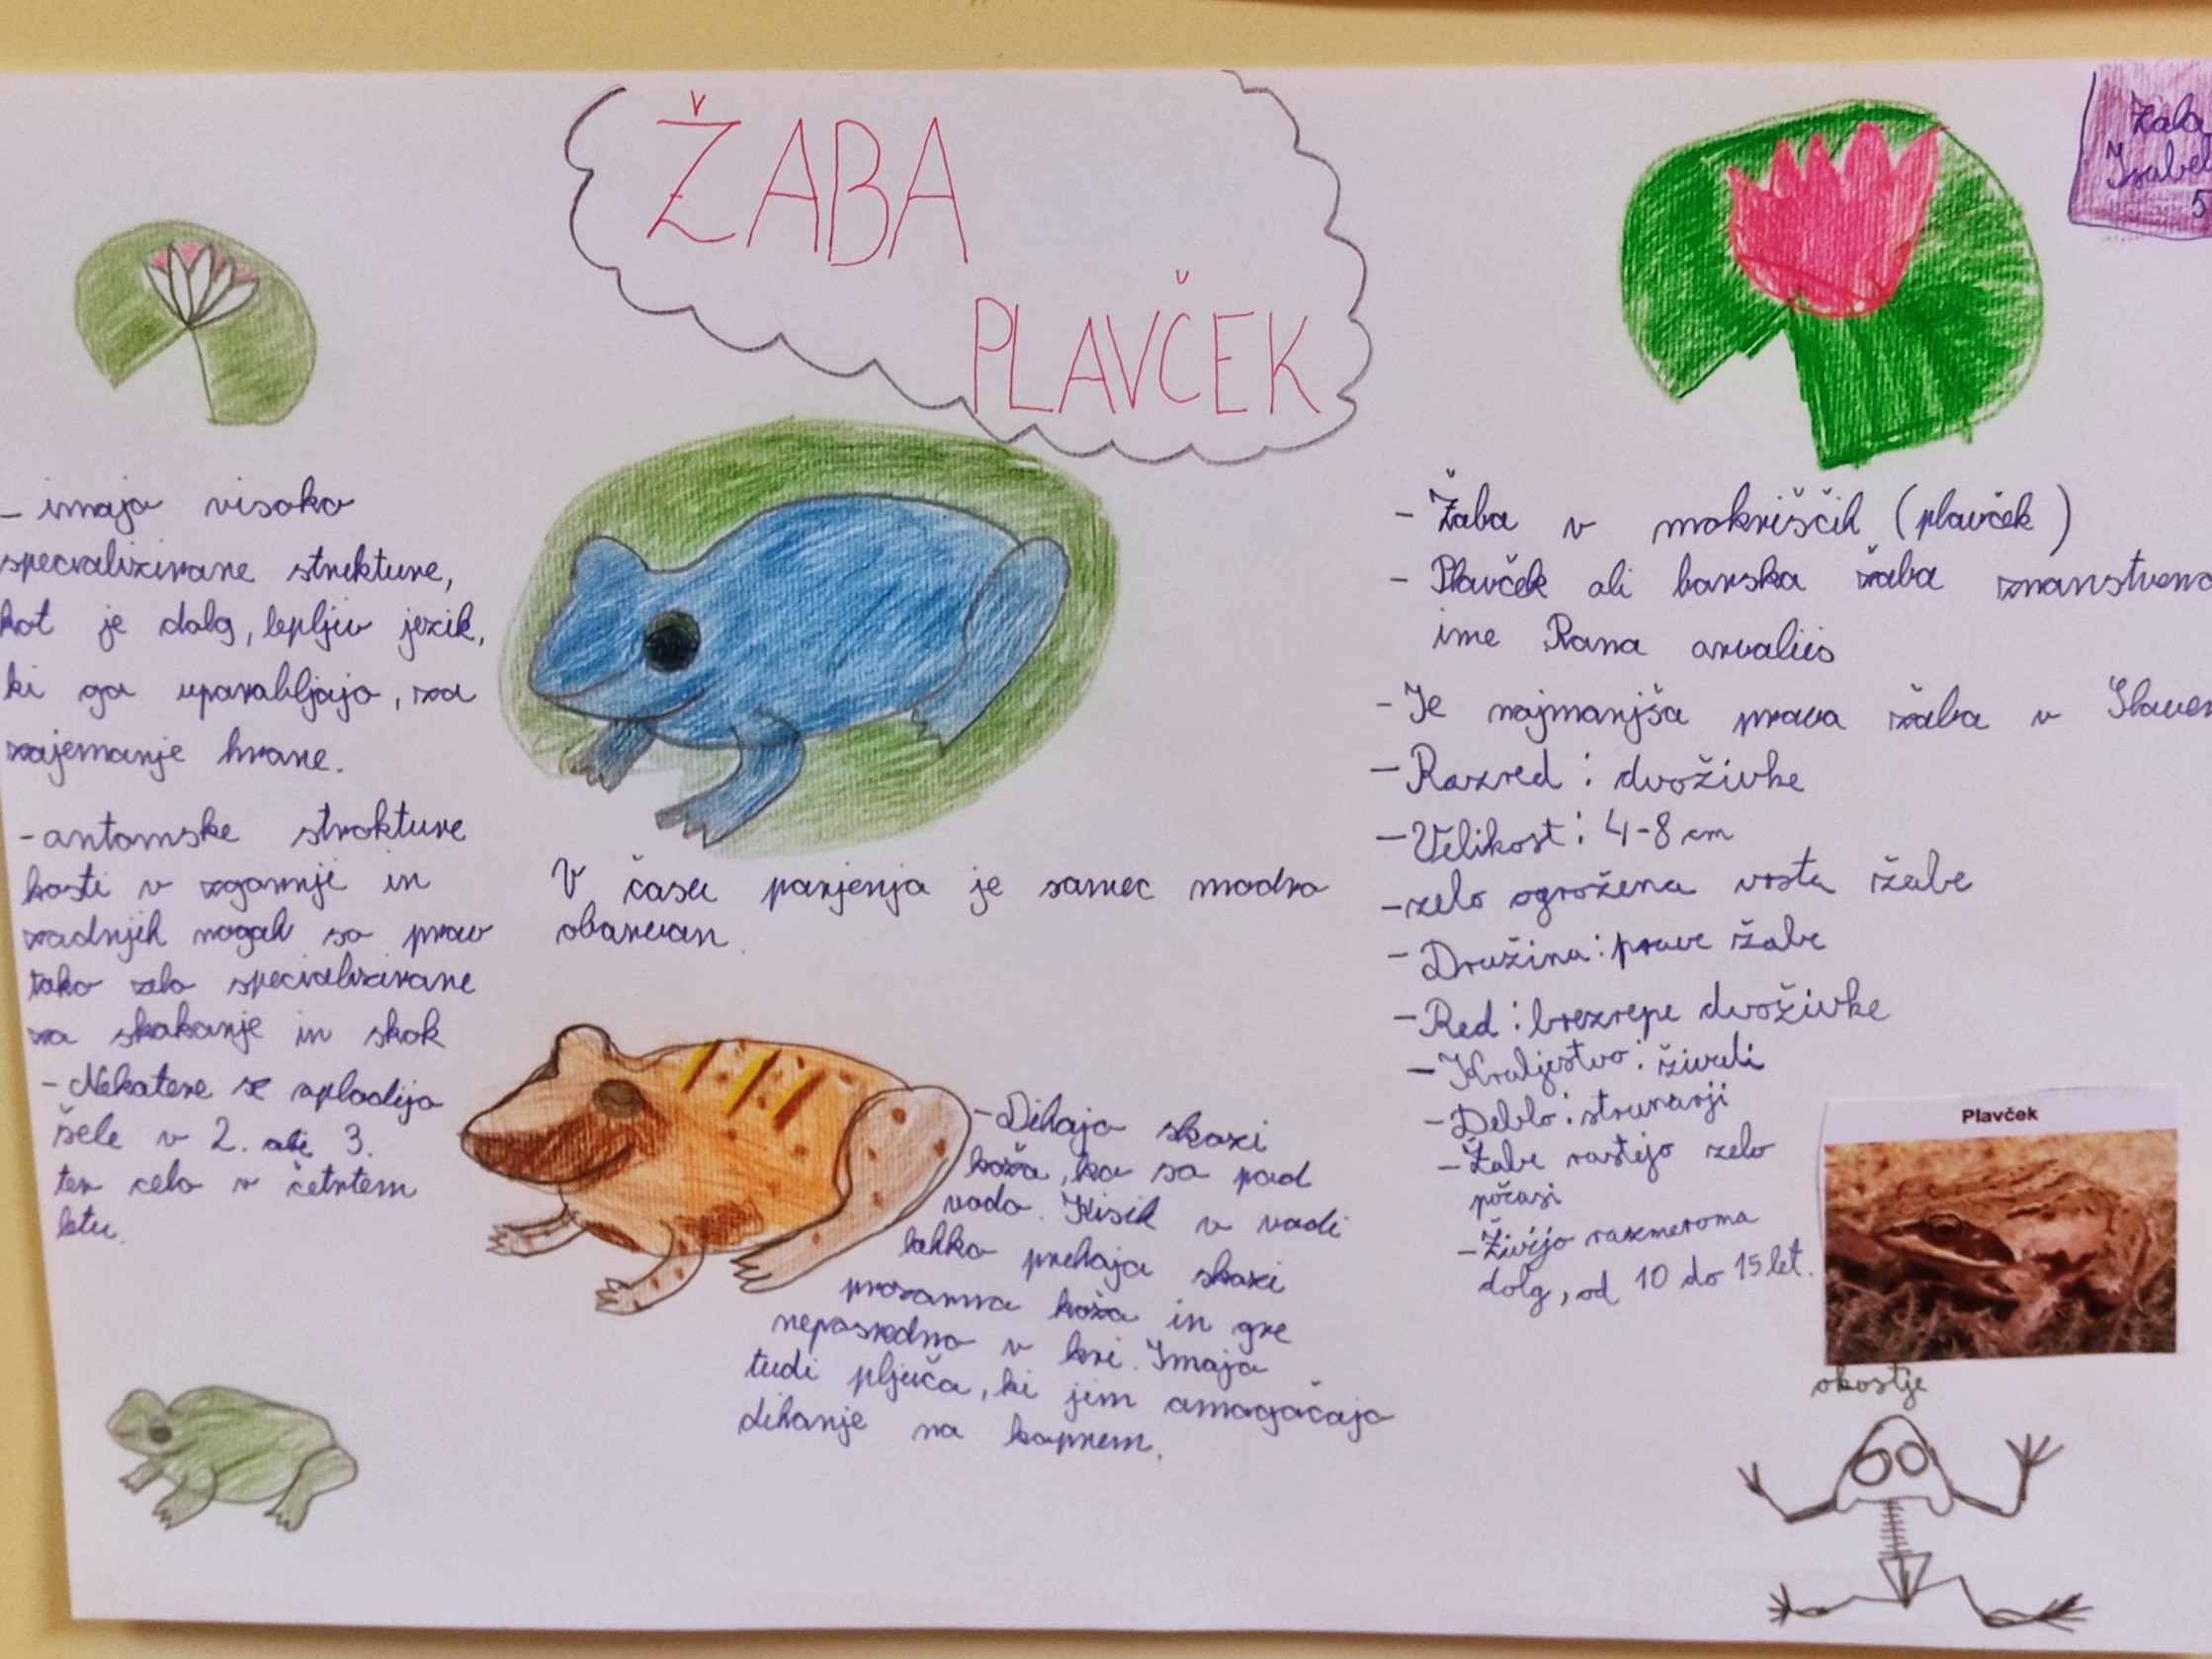 ŽABA
PLAVČEK
Žaba
- imajo visoko
specializirane strukture,
kot je dolg, lepljiv jezik,
ki ga uporabljajo, za
zajemanje hrane.
- antomske strokture
kosti v zgornnje in
zadnjih nogah so prav
tako zelo specializirane
za skakanje in skok
- Nekatere se oplodijo
šele v 2. ali 3.
ter celo v četrtem
letu.
V času parjenja je samec modro
obarvan.
- Dihajo skozi
kožo, ko so pod
vodo. Kisik v vodi
lahko prehaja skozi
kožo in gre
neposredno v kri. Imajo
tudi pljuča, ki jim omogočajo
dihanje na kopnem.
- Žaba v mokriščih (plavček)
- Plavček ali barska žaba
ime Rana arvaliis
- Je najmanjša prava žaba v
- Razred: dvoživke
- Velikost: 4-8 cm
- zelo ogrožena vrsta žabe
- Družina: prave žabe
- Red: brezrepe dvoživke
- Kraljestvo: živali
- Deblo: strunarji
- Žabe rastejo zelo
počasi
- Živijo razmeroma
dolg, od 10 do 15 let.
Plavček
okostje